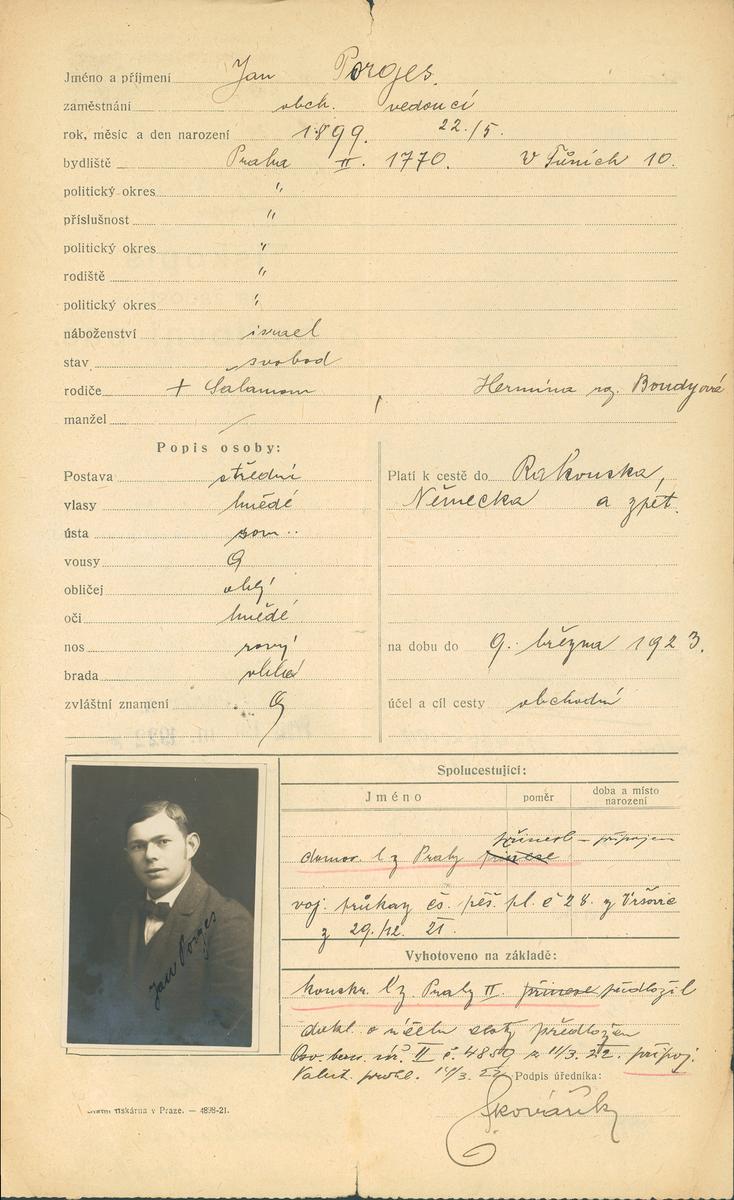 Jméno a příjmení Jan Porges.
zaměstnání obch. vedoucí
rok, měsíc a den narození 1899. 22./5.
bydliště Praha II. 1770. V Tůních 10.
politický okres "
příslušnost "
politický okres "
rodiště "
politický okres "
náboženství israel
stav svobod
rodiče + Salamoun Hermina roz. Bondyová
manžel
Popis osoby:
Postava střední
vlasy hnědé
ústa
vousy
obličej
oči hnědé
nos rovný
brada
zvláštní znamení
Platí k cestě do Rakouska,
Německa a zpět.
na dobu do 9. března 1923.
účel a cíl cesty obchodní
Jan Porges
Spolucestující:
Jméno poměr doba a místo narození
domov. l z Prahy připojen
voj. průkaz čs. pěš. pl. č 28. z Vršovic
z 29./12. 21.
Vyhotoveno na základě:
konskr. l z. Prahy II. předložil
dokl. o účelu cesty předložen
II č. 4859 z 11/3. 22. připoj.
Valut. prohl.
Podpis úředníka:
tiskárna v Praze. — 4898-21.